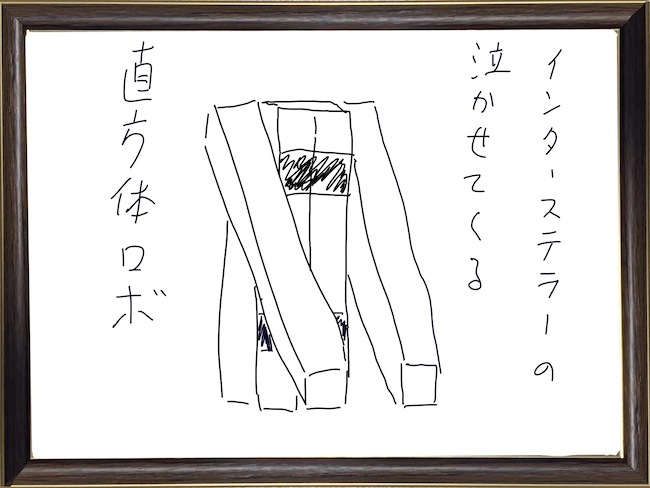 インターステラーの
泣かせてくる
直方体ロボ